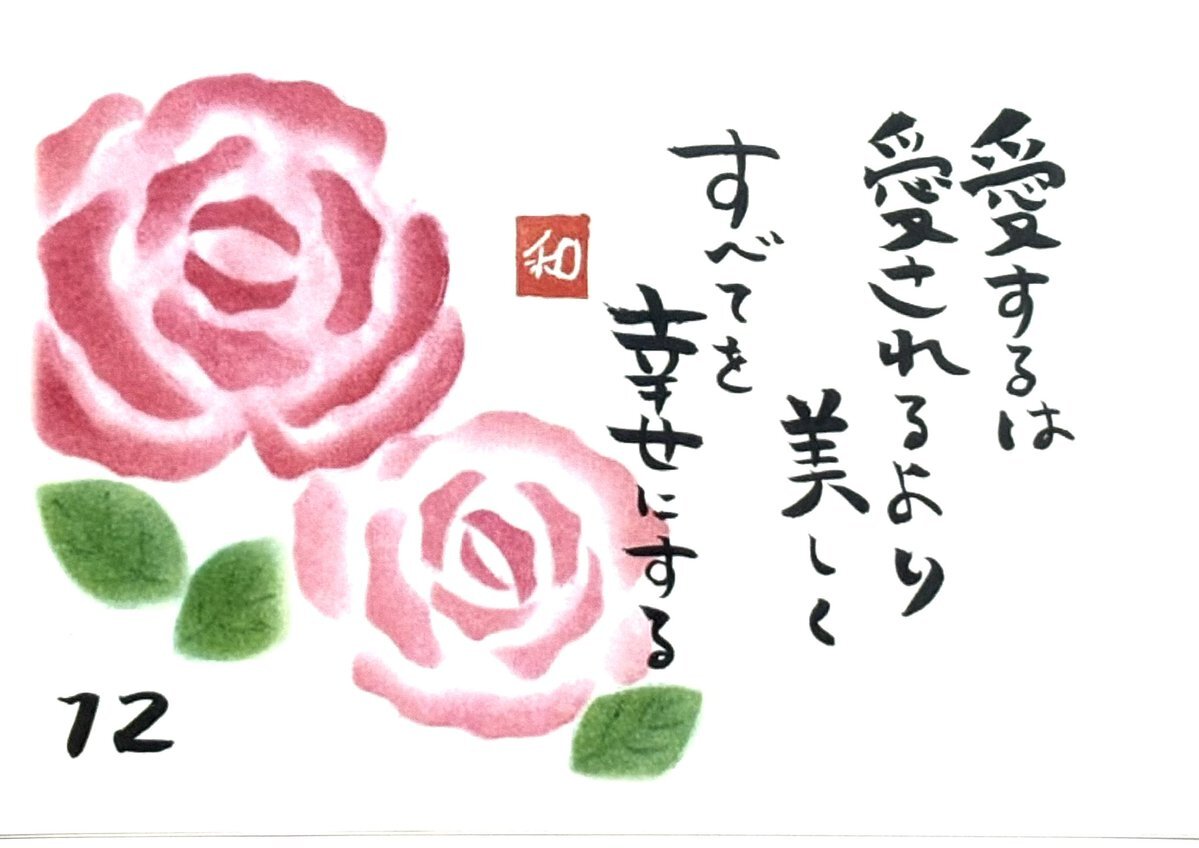 愛するは
愛されるより
美しく
すべてを
幸せにする
和
12